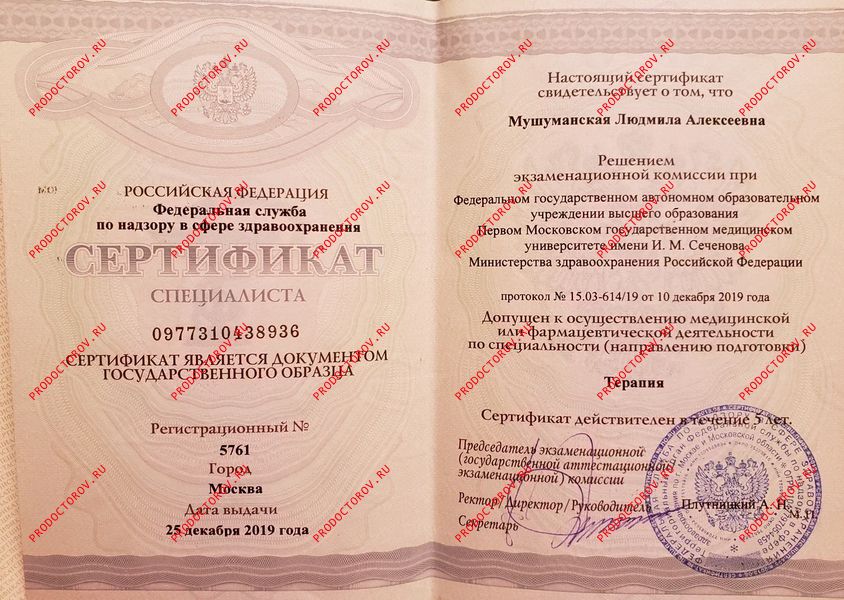 РОССИЙСКАЯ ФЕДЕРАЦИЯ
Федеральная служба
по надзору в сфере здравоохранения
СЕРТИФИКАТ
СПЕЦИАЛИСТА
0977310438936
СЕРТИФИКАТ ЯВЛЯЕТСЯ ДОКУМЕНТОМ
ГОСУДАРСТВЕННОГО ОБРАЗЦА
Регистрационный №
5761
Город
Москва
Дата выдачи
25 декабря 2019 года
Настоящий сертификат
свидетельствует о том, что
Мушуманская Людмила Алексеевна
Решением
экзаменационной комиссии при
Федеральном государственном автономном образовательном
учреждении высшего образования
Первом Московском государственном медицинском
университете имени И. М. Сеченова
Министерства здравоохранения Российской Федерации
протокол № 15.03-614/19 от 10 декабря 2019 года
Допущен к осуществлению медицинской
или фармацевтической деятельности
по специальности (направлению подготовки)
Терапия
Сертификат действителен в течение 5 лет.
Председатель экзаменационной
(государственной аттестационной,
экзаменационной) комиссии
Ректор/Директор/Руководитель
Плутницкий А.Н.
М.П.
Секретарь
PRODOCTOROV.RU